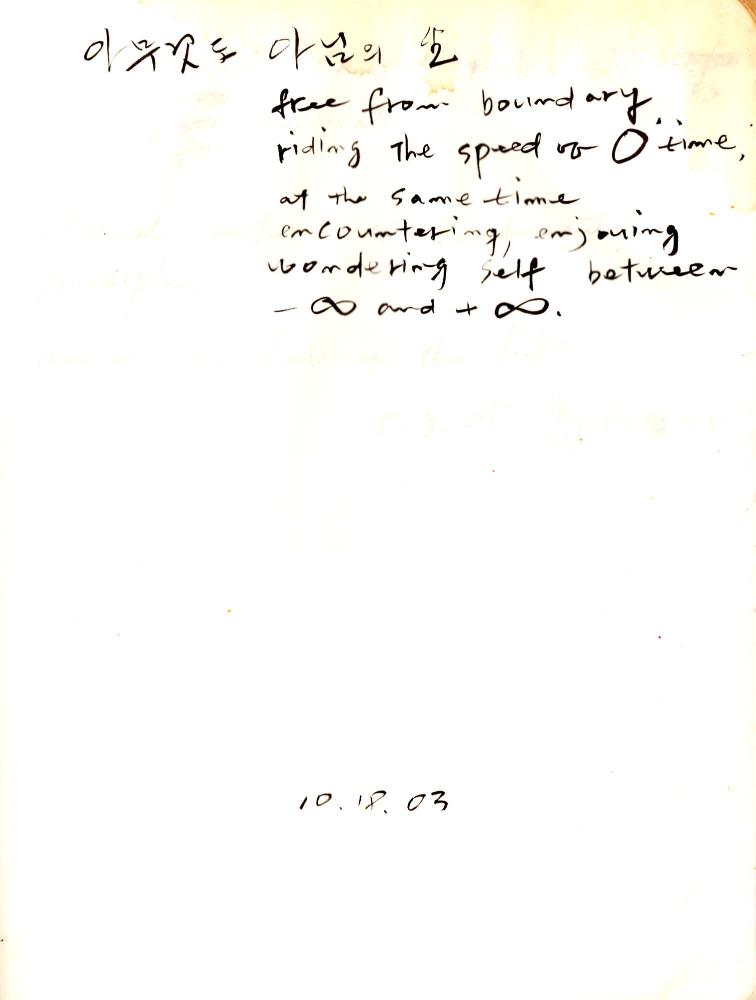 아무것도 아님의 生
free from boundary
riding the speed of 0 time,
at the same time
encountering, enjoying
wondering self between
- ∞ and + ∞.
10.18.03